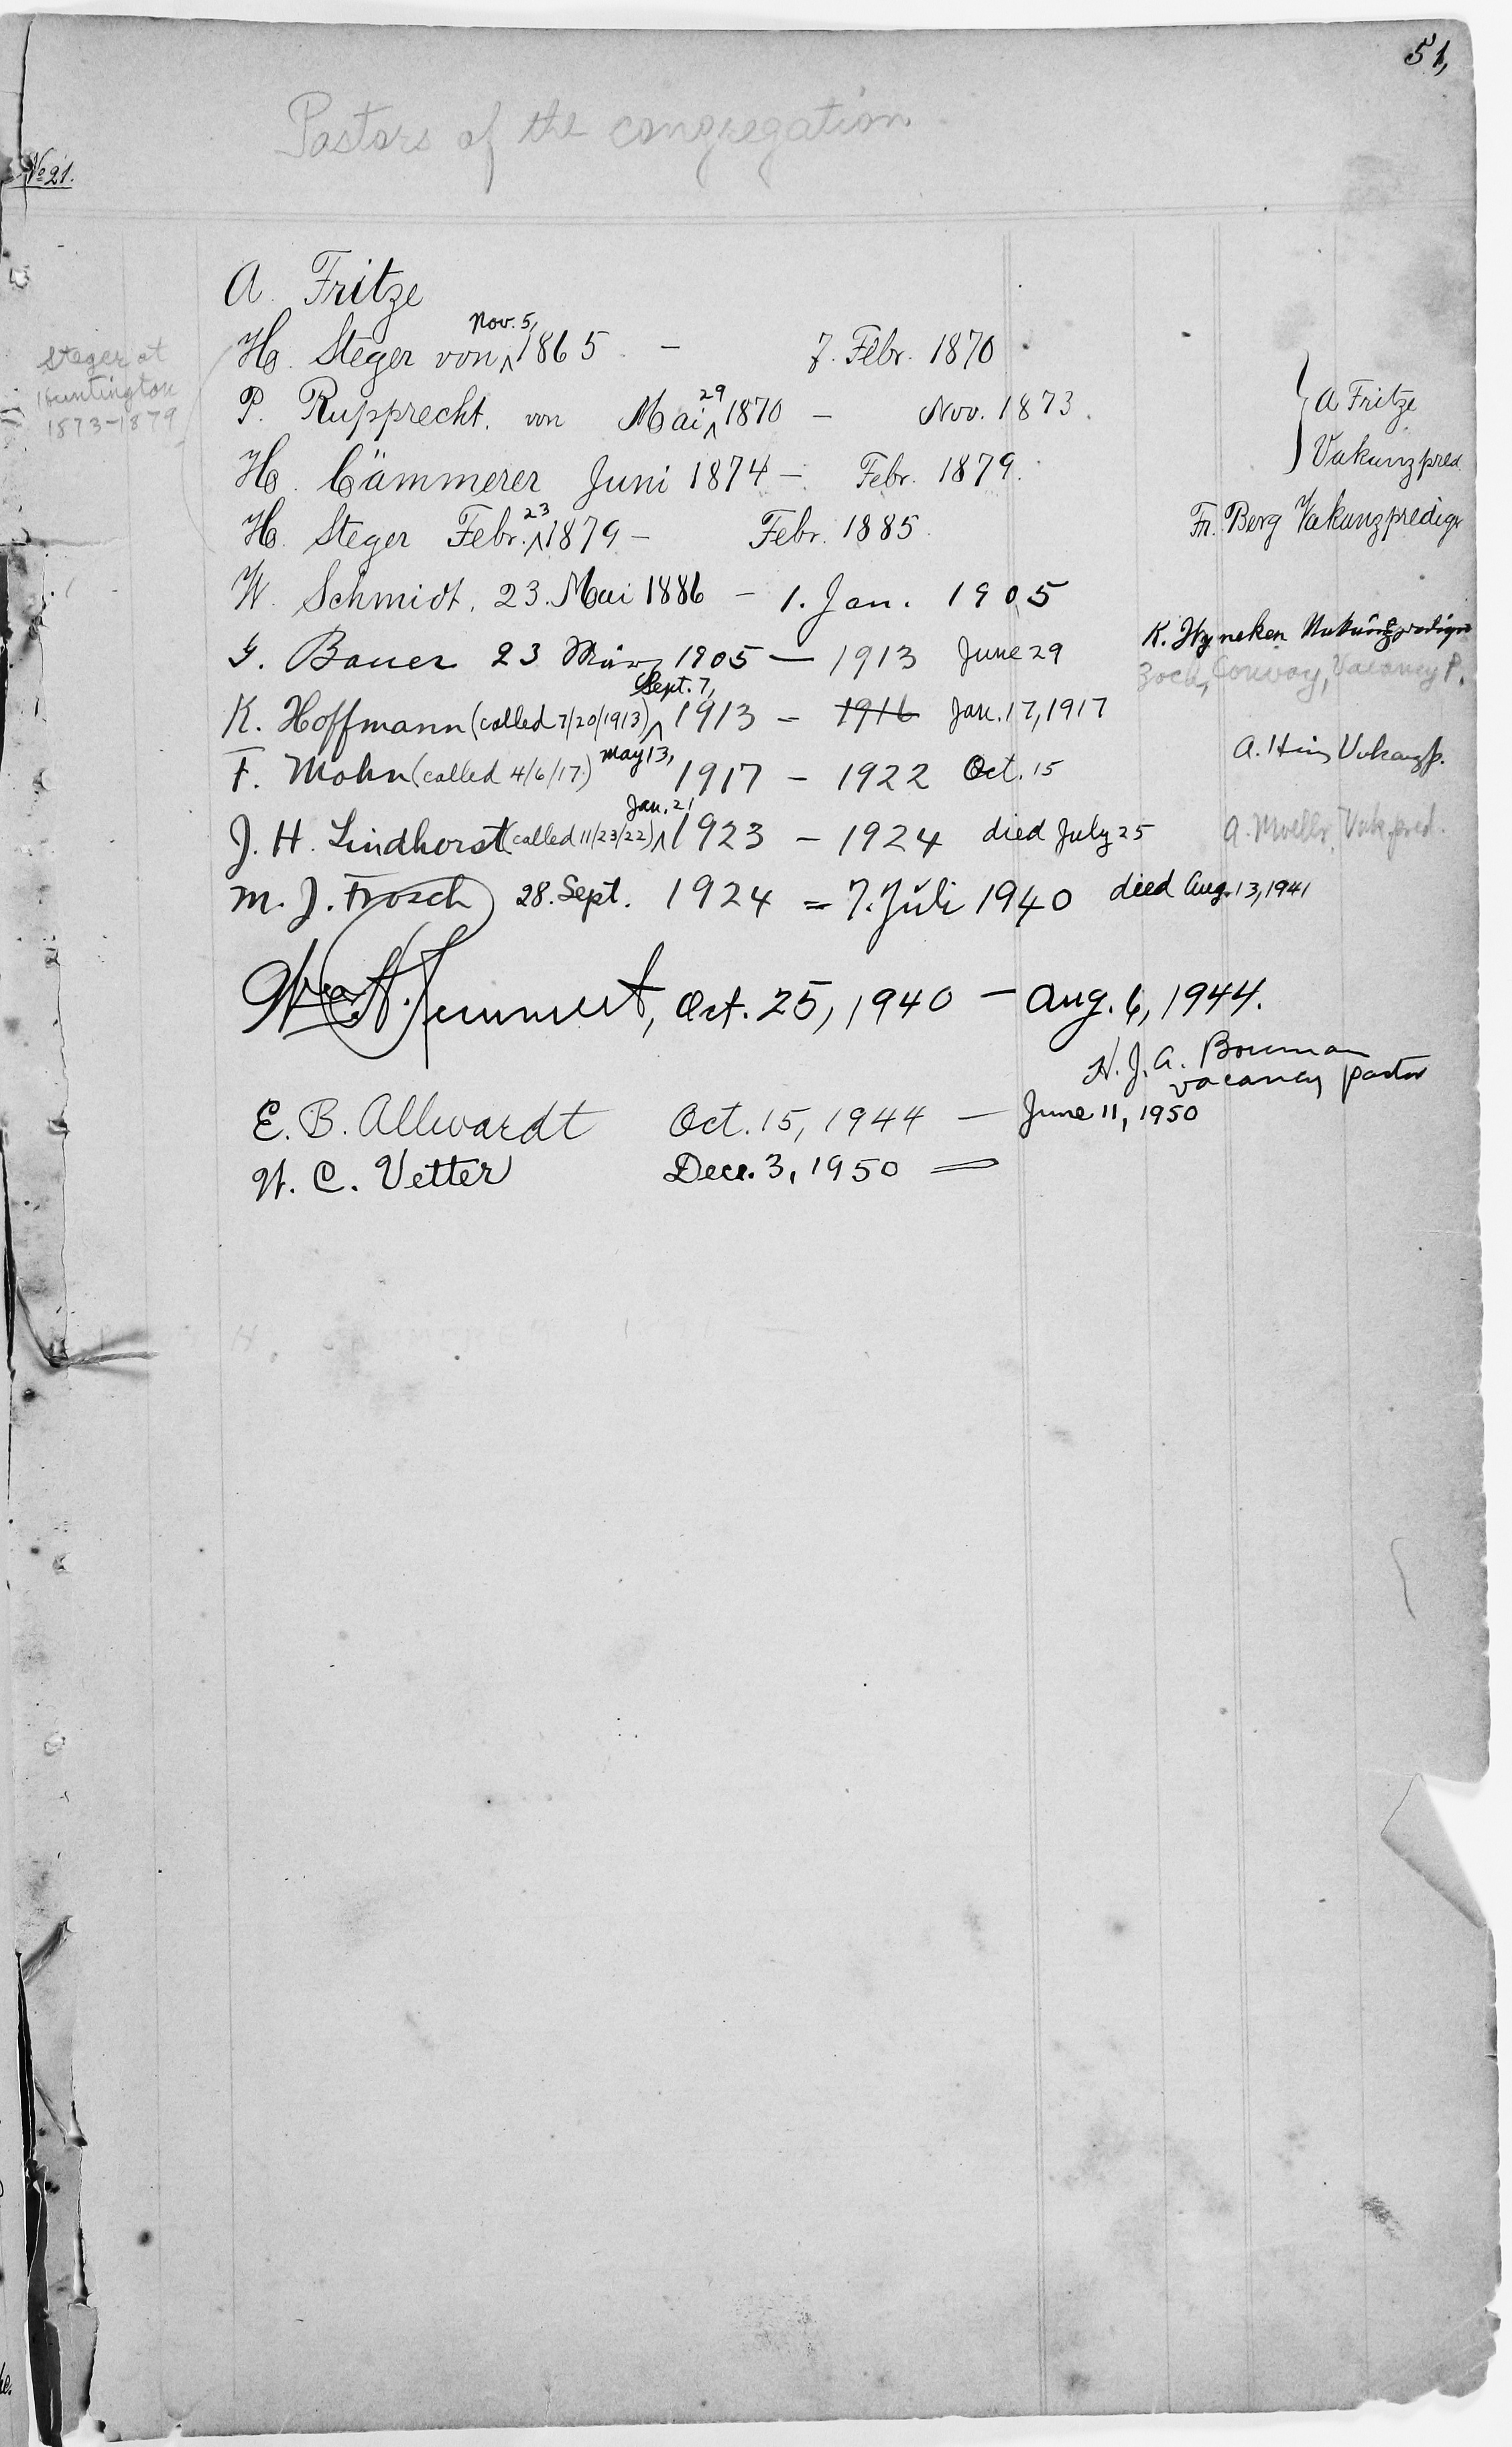 51,
Pastors of the congregation
No 21.
A. Fritze
H. Steger von Nov. 5, 1865 - 7. Febr. 1870
Steger at
Huntington
1873-1879
P. Rupprecht. von Mai 29 1870 - Nov. 1873.
A Fritze
Vakanzpred.
H. Cämmerer Juni 1874 - Febr. 1879.
H. Steger Febr. 23 1879 - Febr. 1885.
Fr. Berg Vakanzpredigr
W. Schmidt, 23. Mai 1886 - 1. Jan. 1905
K. Wyneken
G. Bauer 23 März 1905 - 1913 June 29
Zoch, Conway, Vacancy P.
K. Hoffmann (called 7/20/1913) Sept. 7, 1913 - 1916 Jan. 17, 1917
A. Vakanzp.
F. Mohn (called 4/6/17) May 13, 1917 - 1922 Oct. 15
J. H. Lindhorst (called 11/23/22) Jan. 21 1923 - 1924 died July 25
A. Moeller, Vak. pred.
M. J. Frosch 28. Sept. 1924 = 7. Juli 1940 died Aug. 13, 1941
Oct. 25, 1940 - Aug. 6, 1944.
H. J. A. Bouman
vacancy pastor
E. B. Allwardt Oct. 15, 1944 - June 11, 1950
W. C. Vetter Dec. 3, 1950 =